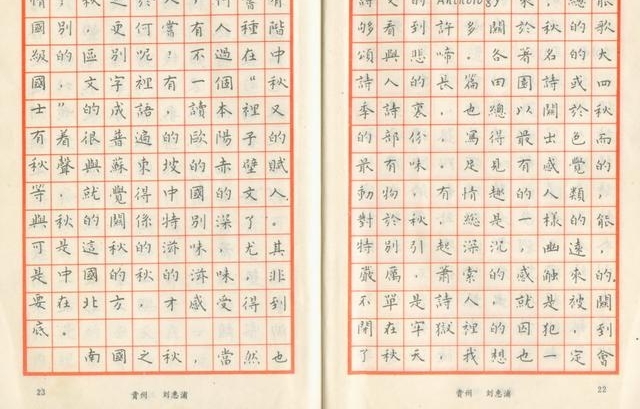 詩文的Anthology來，總能
够看到許多關於秋的歌
頌與悲啼。各著名的大
詩人的長篇田園詩或四
季詩裏，也總以關於秋
的部份，寫得最出色而
最有味。足見有感覺的
動物，有情趣的人類，
對於秋，總是一樣的能
特別引起深沉，幽遠，
嚴厲，蕭索的感觸來的。
不單是詩人，就是被關
閉在牢獄裡的囚犯，到
了秋天，我想也一定會
貴州 刘惠浦 22
國別，更何嘗有人種階
級的區別呢？不過在中
國，文字裡有一個“秋
士”的成語，讀本裡又
有着很普遍的歐陽子的
秋聲與蘇東坡的赤壁賦
等，就覺得中國的文人，
與秋的關係特別深了。
可是這秋的滋味，尤其
是中國的秋的滋味，非
要在北方，才感受得到
底。
南國之秋，當然也
23 貴州 刘惠浦